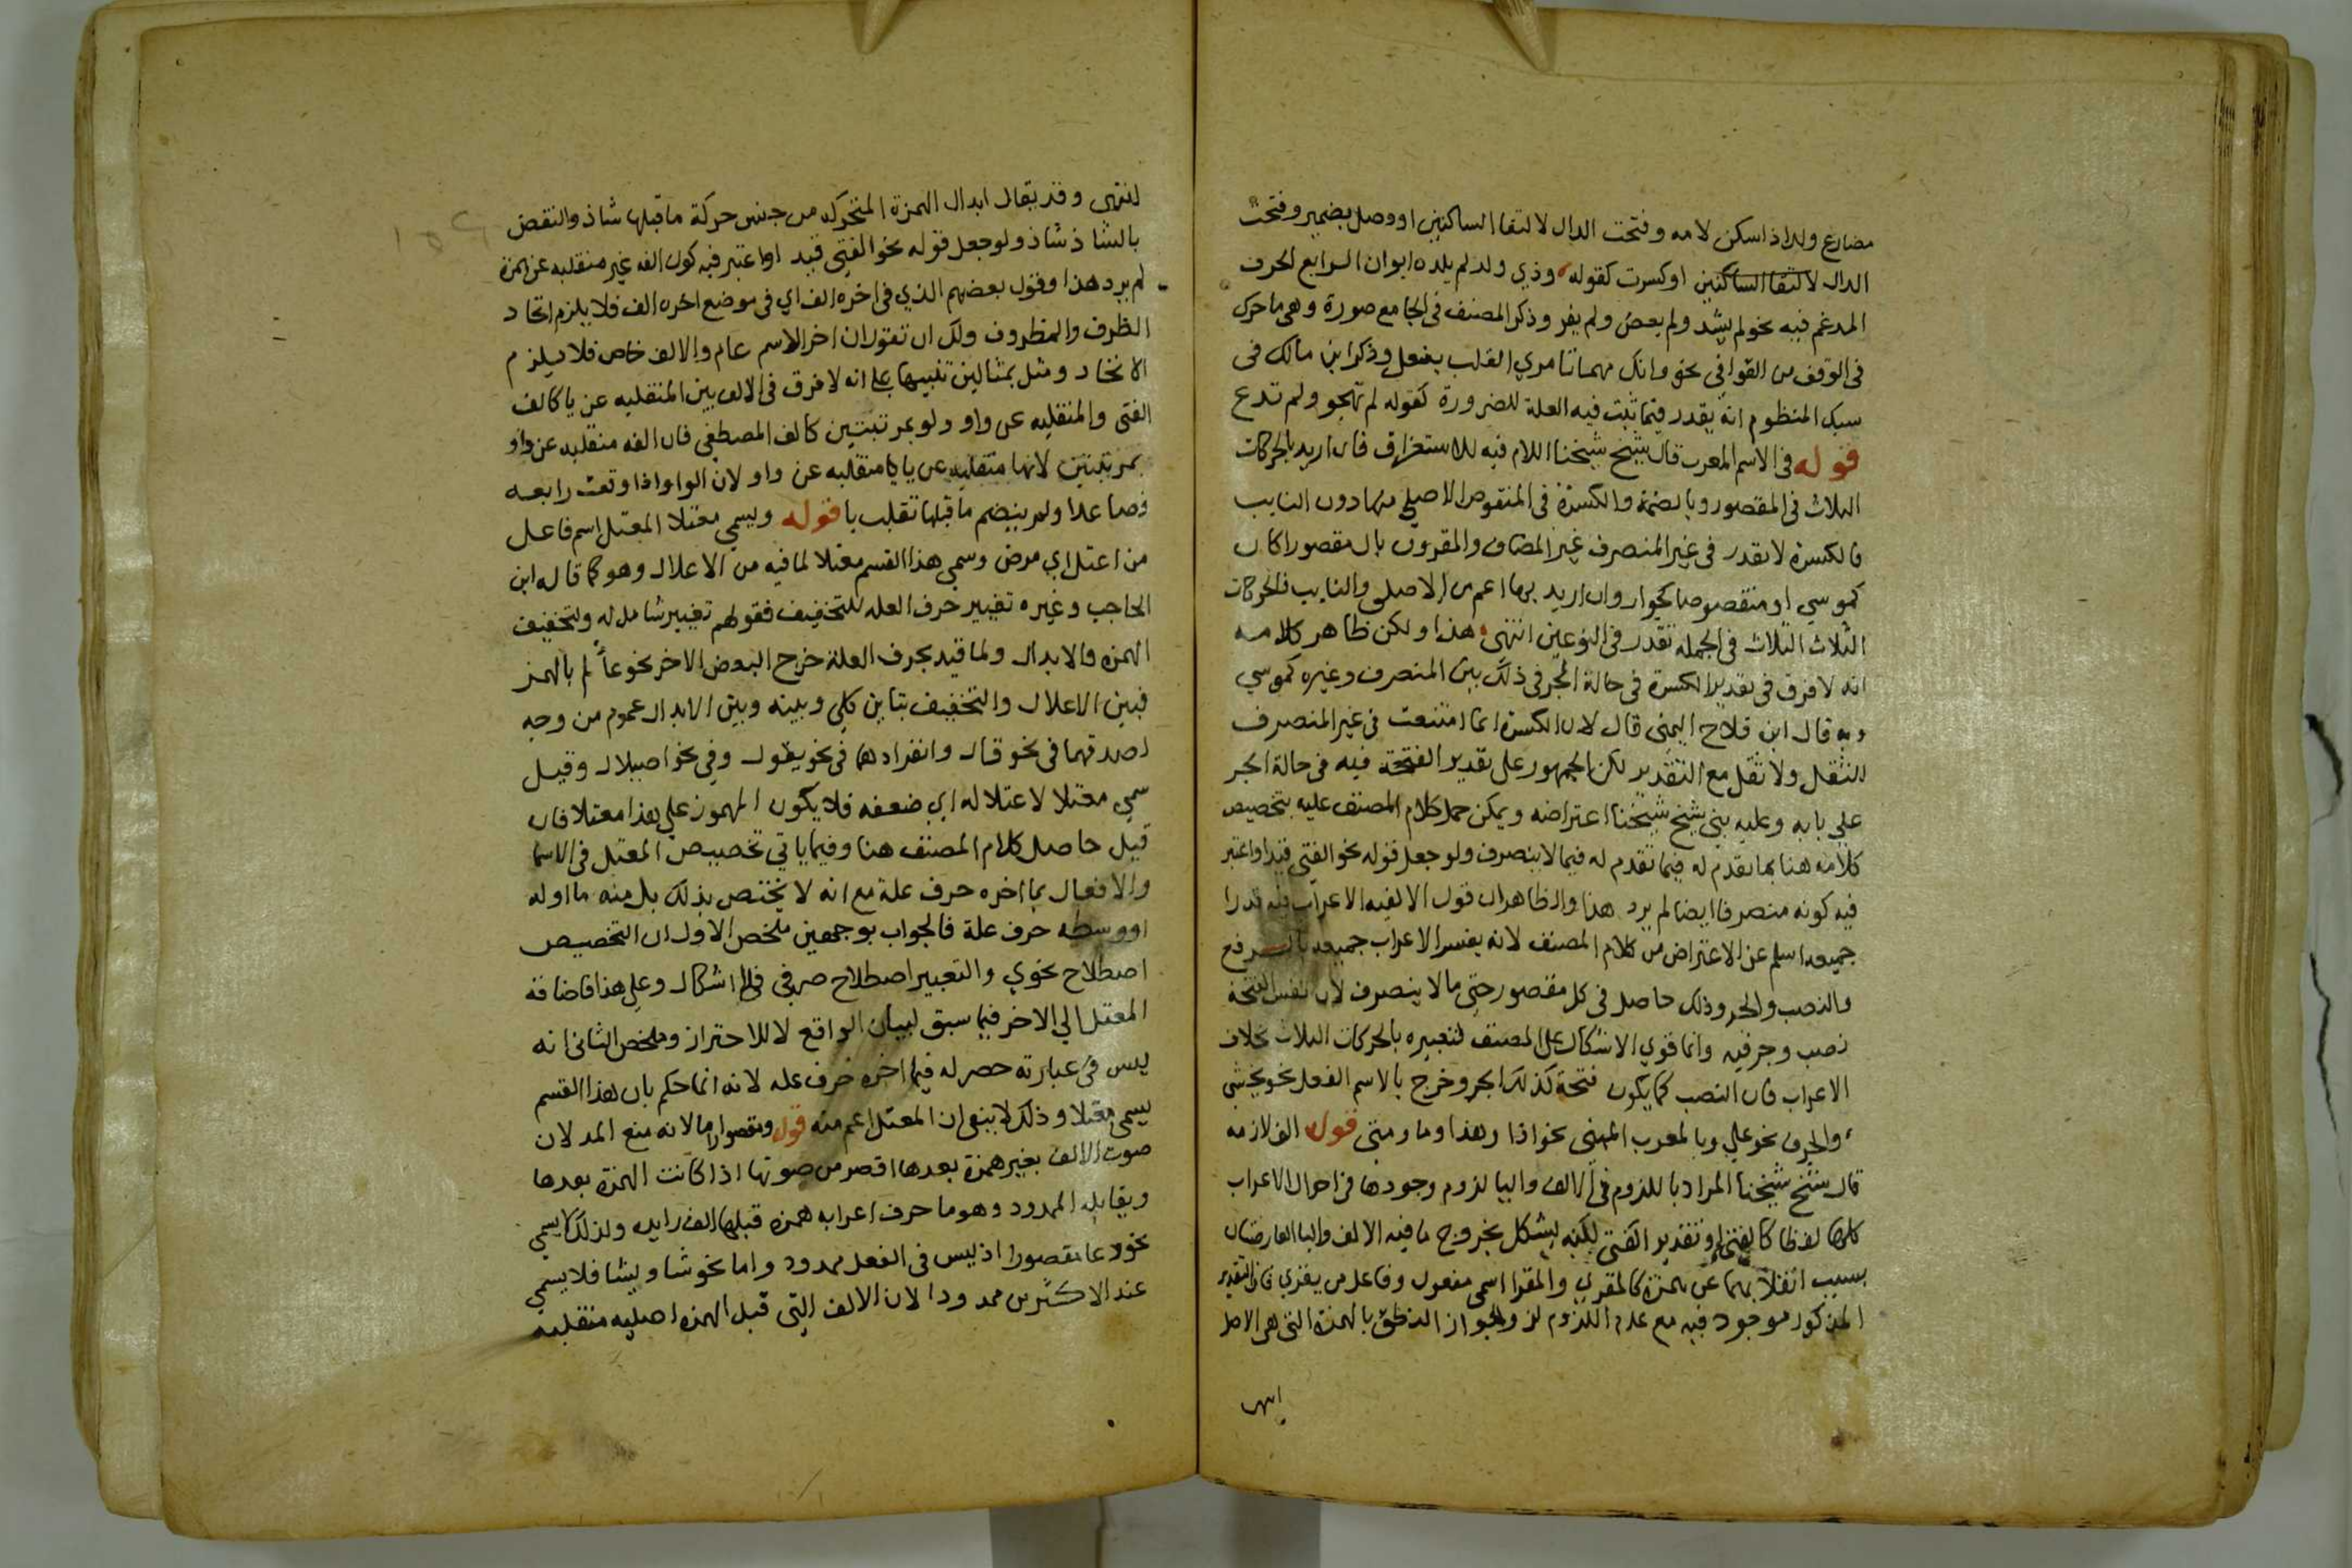 مضارع ولد اذا سكن لامه وفتحت الدال لالتقا الساكنين او وصل بضمير وفتحت
الدال لالتقا الساكنين او كسرت كقوله وذي ولد لم يلده ابوان الرابع الحرف
المدغم فيه نحو لم يشد ولم يعض ولم يفر وذكر المصنف في الجامع صورة وهي ما حرك
في الوقف من القوافي نحو وانك مهما تامري القلب يفعل وذكر ابن مالك في
سبك المنظوم انه يقدر فيما ثبت فيه العلة للضرورة كقوله لم تهجو ولم تدع
قوله في الاسم المعرب قال شيخ شيخنا اللام فيه للاستغراق فان اريد بالحركات
الثلاث في المقصور وبالضمة والكسرة في المنقوص الاصلي منها دون النايب
فالكسرة لا تقدر في غير المنصرف غير المضاف والمقرون بال مقصورا كان
كموسي او منقصوصا كجوار وان اريد بها اعم من الاصلي والنايب فالحركات
الثلاث الثلاث في الجملة تقدر في النوعين انتهى هذا ولكن ظاهر كلامه
انه لا فرق في تقدير الكسرة في حالة الجر في ذلك بين المنصرف وغيره كموسي
وبه قال ابن فلاح اليمني قال لان الكسرة انما امتنعت في غير المنصرف
للثقل ولا ثقل مع التقدير لكن الجمهور على تقدير الفتحة فيه في حالة الجر
علي بابه وعليه بني شيخ شيخنا اعتراضه ويمكن حمل كلام المصنف عليه بتخصيص
كلامه هنا بما تقدم له فيما تقدم له فيما لا ينصرف ولو جعل قوله نحو الفتي قيدا واعتبر
فيه كونه منصرفا ايضا لم يرد هذا والظاهر ان قول الالفيه الاعراب فيه قدرا
جميعه اسلم عن الاعتراض من كلام المصنف لانه يفسر الاعراب جميعه بالرفع
والنصب والجر وذلك حاصل في كل مقصور حتى ما لا ينصرف لان نفس الفتحة
نصب وجر فيه وانما قوي الاشكال على المصنف لتعبيره بالحركات الثلاث بخلاف
الاعراب فان النصب كما يكون فتحة كذلك الجر وخرج بالاسم الفعل نحو يخشي
والحرف نحو علي وبالمعرب المبني نحو اذا وهذا وما ومتى قوله الف لازمه
قال شيخ شيخنا المراد باللزوم في الالف واليا لزوم وجودها في احوال الاعراب
كلها لفظا كالفتى او تقدير الفتى لكنه يشكل بخروج ما فيه الالف واليا العارضتان
بسبب انقلابهما عن همزة كالمقري والمقرا اسمي مفعول وفاعل من يقري فان التقدير
المذكور موجود فيه مع عدم اللزوم لزوم لجواز النطق بالهمزة التي هي الاصل
انتهى
لنتهى وقد يقال ابدال الهمزة المتحركة من جنس حركة ما قبلها شاذ والنقض
بالشاذ شاذ ولو جعل قوله نحو الفتي قيد او اعتبر فيه كون الفه غير منقلبه عن همزة
لم يرد هذا وقول بعضهم الذي في اخره الف اي في موضع اخره الف فلا يلزم اتحاد
الظرف والمظروف ولك ان تقول ان اخر الاسم عام والالف خاص فلا يلزم
الاتحاد ومثل بمثالين تنبيها على انه لا فرق في الالف بين المنقلبه عن يا كالف
الفتى والمنقلبه عن واو ولو بمرتبتين كالف المصطفي فان الفه منقلبه عن واو
بمرتبتين لانها منقلبه عن يا يا منقلبه عن واو لان الواو اذا وقعت رابعه
فصاعدا ولم ينضم ما قبلها تقلب يا قوله ويسمي معتلا المعتل اسم فاعل
من اعتل اي مرض وسمي هذا القسم معتلا لما فيه من الاعلال وهو كما قاله ابن
الحاجب وغيره تغيير حرف العله للتخفيف فقولهم تغيير شامل له ولتخفيف
الهمزة والابدال ولما قيد بحرف العلة خرج البعض الاخر نحو عألم بالهمز
فبين الاعلال والتخفيف تباين كلي وبينه وبين الابدال عموم من وجه
لصدقهما في نحو قال وانفرادهما في نحو يقول وفي نحو اصيلال وقيل
سمي معتلا لاعتلاله اي ضعفه فلا يكون المهموز علي هذا معتلا فان
قيل حاصل كلام المصنف هنا وفيما ياتي تخصيص المعتل في الاسما
والافعال بما اخره حرف علة مع انه لا يختص بذلك بل منه ما اوله
او وسطه حرف علة فالجواب بوجهين ملخص الاول ان التخصيص
اصطلاح نحوي والتعبير اصطلاح صرفي فلا اشكال وعلى هذا فاضافة
المعتل الي الاخر فيما سبق لبيان الواقع لا للاحتراز وملخص الثاني انه
ليس في عبارته حصر له فيما اخره حرف عله لانه انما حكم بان هذا القسم
يسمى معتلا وذلك لا ينفي ان المعتل اعم منه قوله ومقصورا اما لانه منع المد لان
صوت الالف بغير همزة بعدها اقصر من صوتها اذا كانت الهمزة بعدها
ويقابله الممدود وهو ما حرف اعرابه همزة قبلها الف زايده ولذلك لا يسمي
نحو دعا مقصورا اذ ليس في الفعل ممدود واما نحو شا ويشا فلا يسمي
عند الاكثرين ممدودا لان الالف التي قبل الهمزة اصليه منقلبه